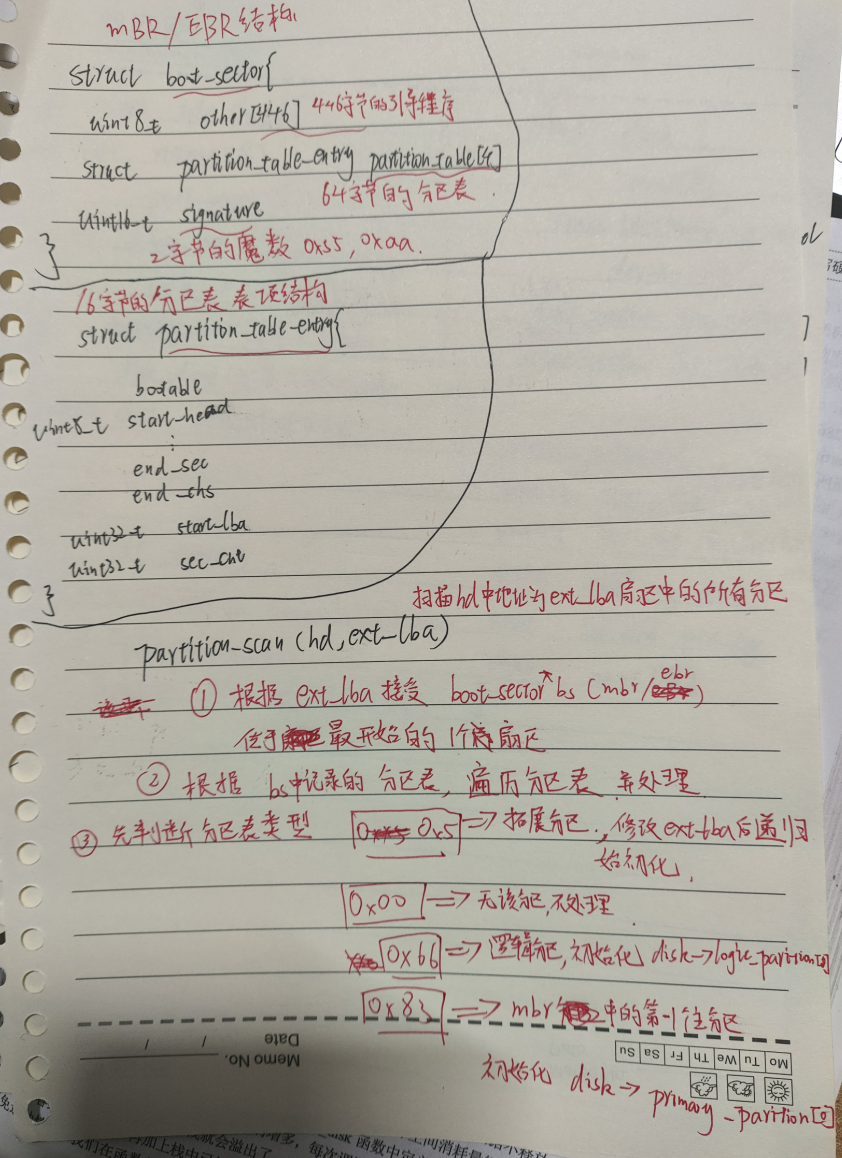 MBR/EBR结构
struct boot_sector{
uint8_t other[446] 446字节的引导程序
struct partition_table_entry partition_table[4]
64字节的分区表.
uint16_t signature
2字节的魔数 0x55, 0xaa.
}
16字节的分区表表项结构
struct partition_table-entry{
bootable
uint8_t start-head
⋮
end_sec
end_chs
uint32-t start-lba
uint32-t sec_cnt
}
扫描hd中地址为ext_lba扇区中的所有分区
partition-scan (hd, ext_lba)
① 根据 ext_lba 接受 boot_sector* bs (mbr/ebr)
位于最开始的1个扇区
② 根据 bs中记录的 分区表, 遍历分区表 并处理
③ 先判断分区表类型 0x5 => 拓展分区, 修改ext-lba后递归
始初化,
0x00 => 无该分区,不处理
0x66 => 逻辑分区, 初始化 disk->logic_partition[0]
0x83 => mbr中的第一个主分区
Memo No.
Date / /
Mo Tu We Th Fr Sa Su
初始化 disk-> primary_partition[0]